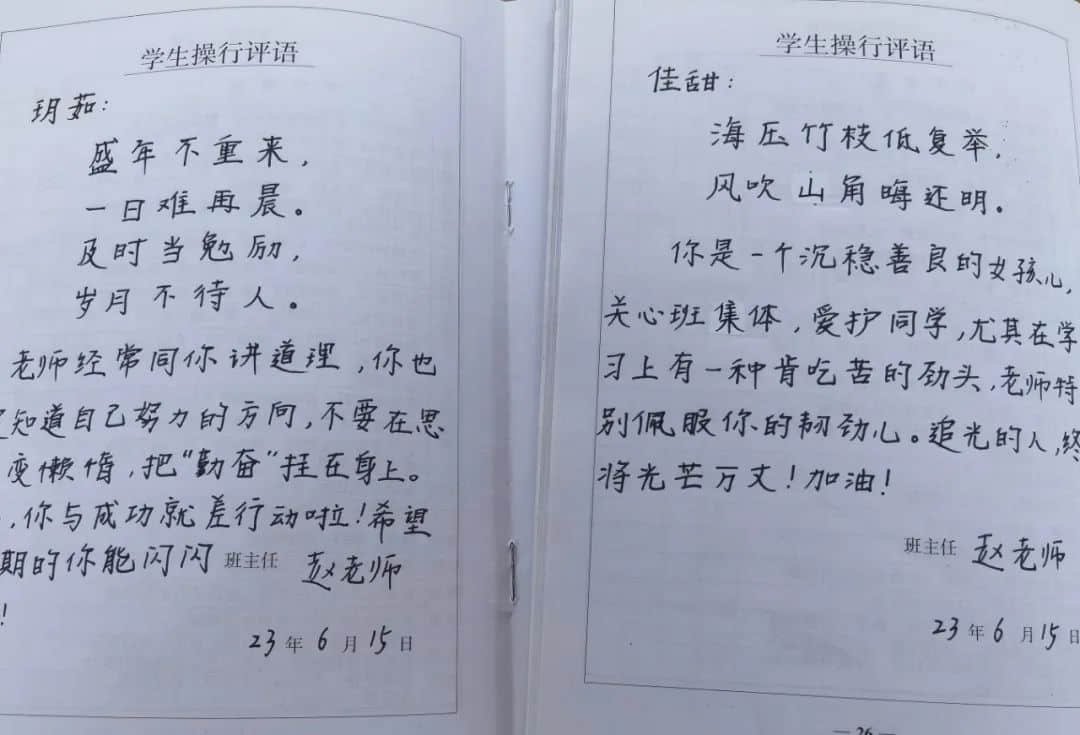 学生操行评语
玥茹：
盛年不重来，
一日难再晨。
及时当勉励，
岁月不待人。
老师经常同你讲道理，你也
知道自己努力的方向，不要在思
变懒惰，把“勤奋”挂在身上。
，你与成功就差行动啦！希望
期的你能闪闪 班主任 赵老师
！
23年6月15日
学生操行评语
佳甜：
海压竹枝低复举，
风吹山角晦还明。
你是一个沉稳善良的女孩儿，
关心班集体，爱护同学，尤其在学
习上有一种肯吃苦的劲头，老师特
别佩服你的韧劲儿。追光的人，终
将光芒万丈！加油！
班主任 赵老师
23年6月15日
— 26 —